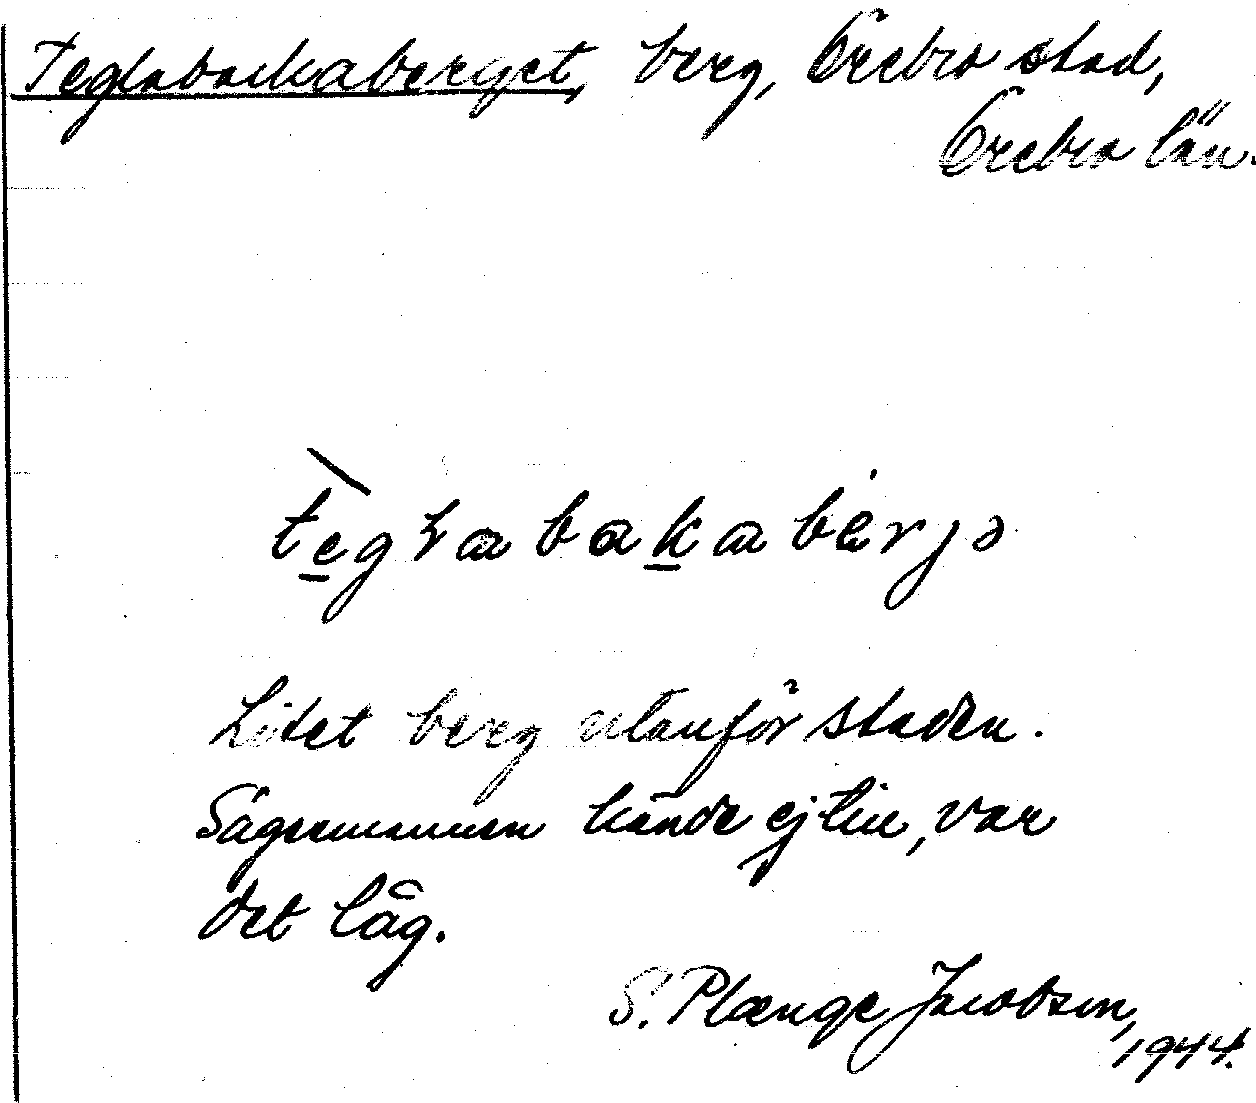 Teglabackaberget, berg, Örebro stad,
Örebro län.
tegƚabakabärjə
Litet berg utanför staden.
Sagesmannen kände ej till, var
det låg.
S. Plænge Jacobsen,
1944.